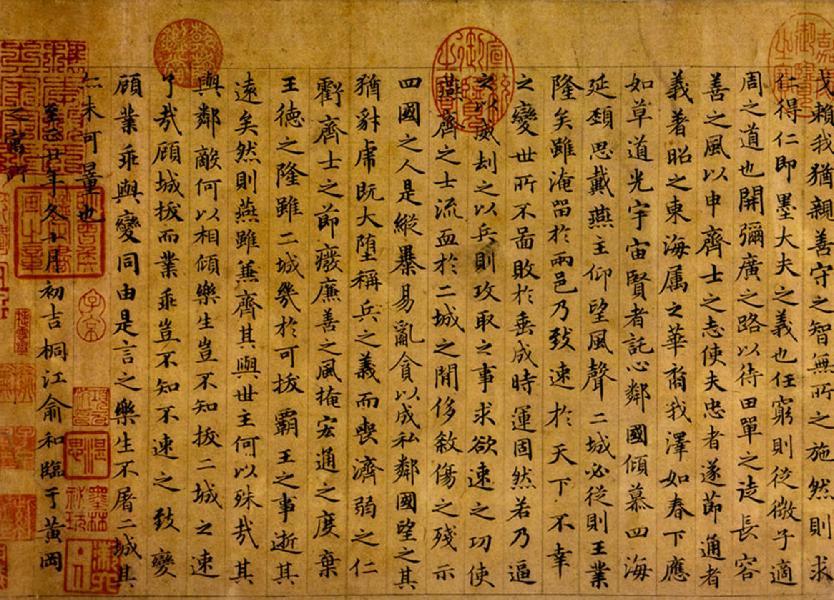 賴我猶親善守之智無所之施然則求
仁得仁即墨大夫之義也任窮則從微子適
周之道也開彌廣之路以待田單之徒長容
善之風以申齊士之志使夫忠者遂節通者
義著昭之東海屬之華裔我澤如春下應
如草道光宇宙賢者託心鄰國傾慕四海
延頸思戴燕主仰望風聲二城必從則王業
隆矣雖淹留於兩邑乃致速於天下不幸
之變世所不圖敗於垂成時運固然若乃逼
之以威劫之以兵則攻取之事求欲速之功使
燕齊之士流血於二城之間侈煞傷之殘示
四國之人是縱暴易亂貪以成私鄰國望之其
猶豺虎既大墮稱兵之義而喪濟弱之仁
虧齊士之節廢廉善之風掩宏通之度棄
王德之隆雖二城幾於可拔霸王之事逝其
遠矣然則燕雖兼齊其與世主何以殊哉其
與鄰敵何以相傾樂生豈不知拔二城之速
了哉顧城拔而業乖豈不知不速之致變
顧業乖與變同由是言之樂生不屠二城其
亦未可量也
至正廿年冬十月初吉桐江俞和臨于黃岡
之寓所